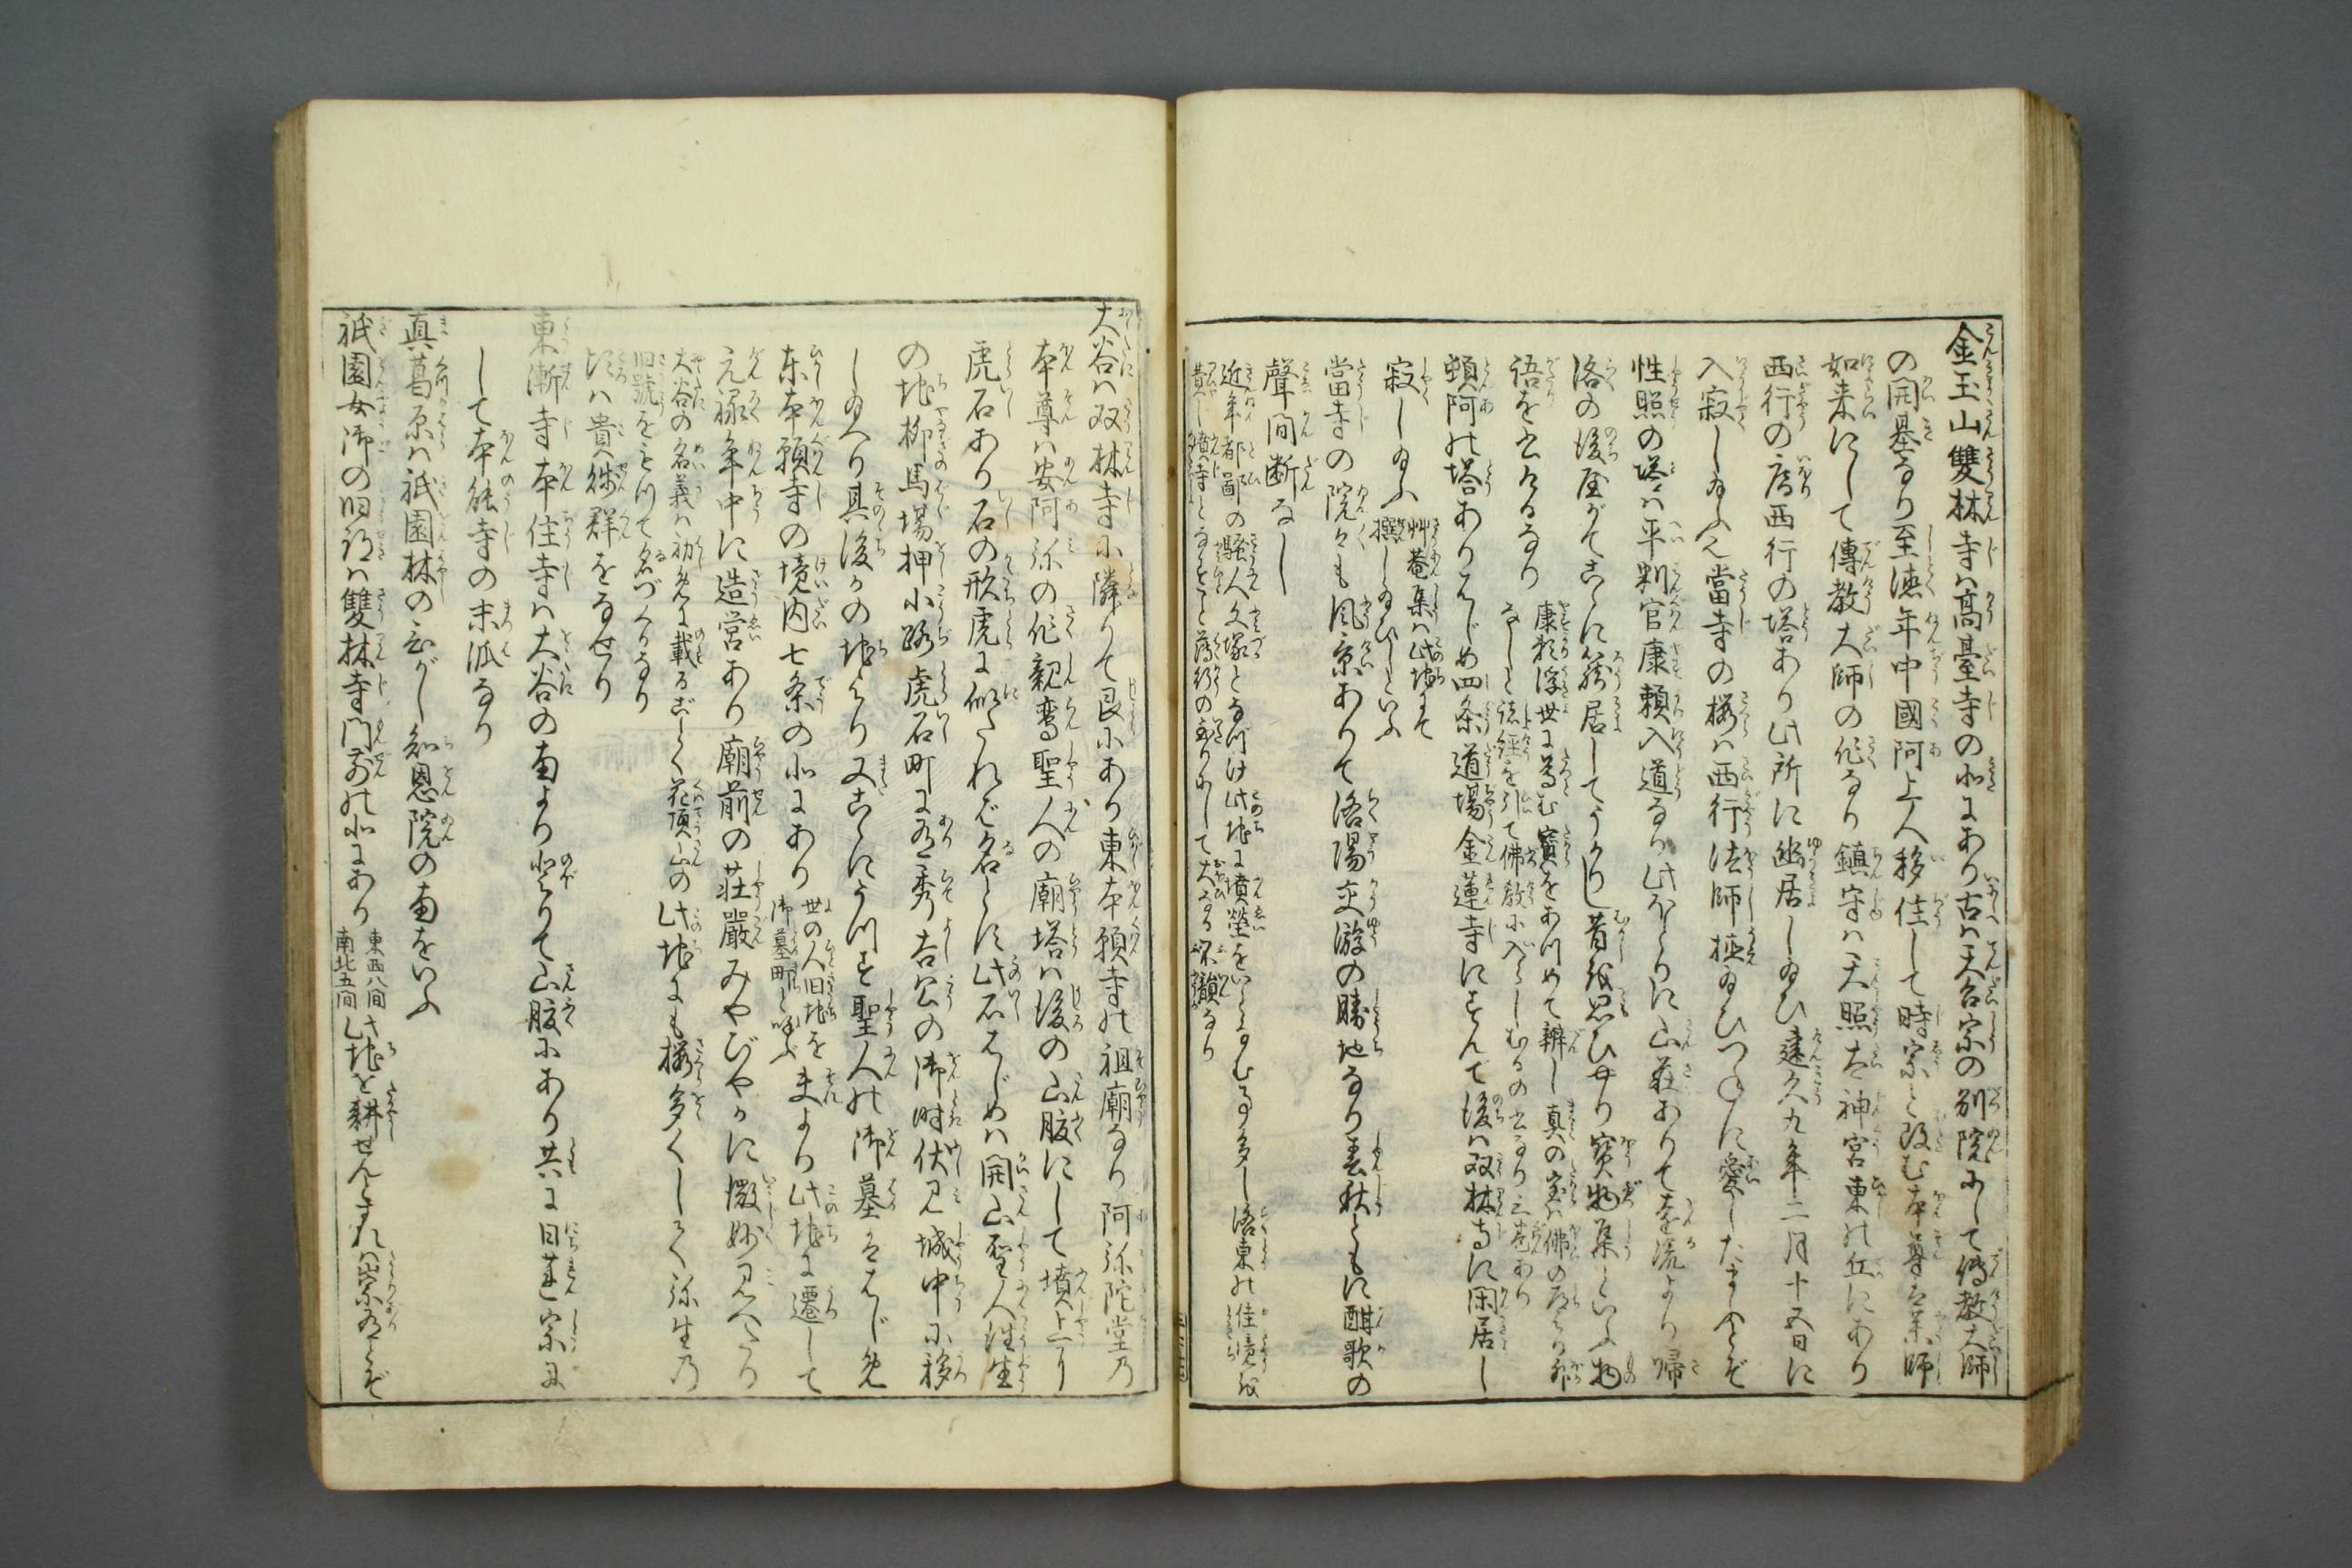 金玉山雙林寺は高臺寺の北にあり古は天台宗の別院にして傳教大師
の開基なり至徳年中國阿上人移住して時宗と改む本尊は薬師
如来にして傳教大師の作なり鎮守は天照太神宮東の丘にあり
西行の庵西行の塔あり此所に幽居し給ひ建久九年二月十五日に
入寂し給ふ當寺の桜は西行法師植給ひつねに愛したまふとぞ
性照の塔は平判官康頼入道なり此ほとりに山荘ありて遠流より帰
洛の後屋がてこゝに篭居してうかりし昔を思ひやり寳物集といふ物
語を書けるなり
康頼浮世に尊む寳をあつめて辨し真の宝は佛の道より外
なしと諸経を引て佛教に入らしむるの書なり三巻あり
頓阿の塔ありはじめ四条道場金蓮寺にすんで後は双林寺に閑居し
寂し給ふ
艸菴集は此地にて
撰し給ひしといふ
當寺の院々も風景ありて洛陽交遊の勝地なり春秋ともに酣歌の
聲間断なし
近年都鄙の騒人文塚となづけ此地に墳塋をいとなむ事多し洛東の佳境を
大谷は双林寺に隣りて艮にあり東本願寺の祖廟なり阿弥陀堂乃
本尊は安阿弥の作親鸞聖人の廟塔は後の山腹にして墳上に
虎石あり石の形虎に似たれば名とす此石はじめは開山聖人往生
の地柳馬場押小路虎石町にあり秀吉公の御時伏見城中に移
し給へり其後かの地より又こゝにうつす聖人の御墓ははじめ
東本願寺の境内七条の北にあり
世の人旧地を
御墓町と呼ふ
夫より此地に遷して
元禄年中に造営あり廟前の荘嚴みやびやかに微妙見へたり
大谷の名義は初めに載るごとく花頂山の
旧號をとつて名づくるなり
此地にも桜多くして弥生乃
比は貴賎群をなせり
東漸寺本住寺は大谷の南より登りて山腹にあり共に日蓮宗に
して本能寺の末派なり
真葛原は祇園林の東がし知恩院の南をいふ
祇園女御の旧跡は雙林寺門前の北にあり
東西八間
南北五間
此地を耕せんとすれは崇ありとぞ